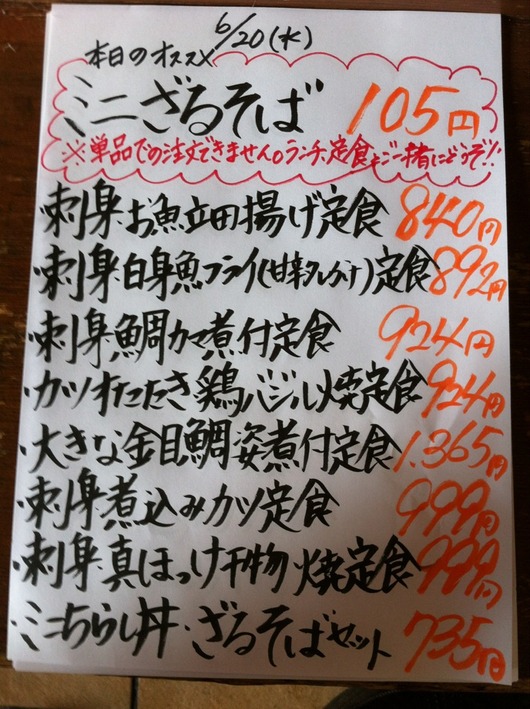 6/20(水)
本日のオススメ
ミニざるそば 105円
※単品での注文できません。ランチ、定食とご一緒にどうぞ!!
・刺身・お魚立田揚げ定食 840円
・刺身・白身魚フライ(甘辛タレがけ)定食 892円
・刺身・鯛カマ煮付定食 924円
・カツオたたき・鶏バジル焼定食 924円
・大きな金目鯛姿煮付定食 1.365円
・刺身・煮込みカツ定食 999円
・刺身・真ほっけ干物焼定食 999円
・ミニちらし丼・ざるそばセット 735円